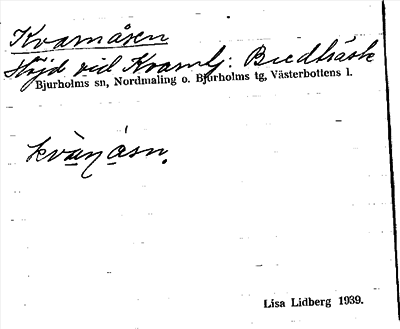 Kvarnåsen
Höjd vid Kvarnbj: Bredträsk
Bjurholms sn, Nordmaling o. Bjurholms tg, Västerbottens l.
kvàṇ ásn.
Lisa Lidberg 1939.